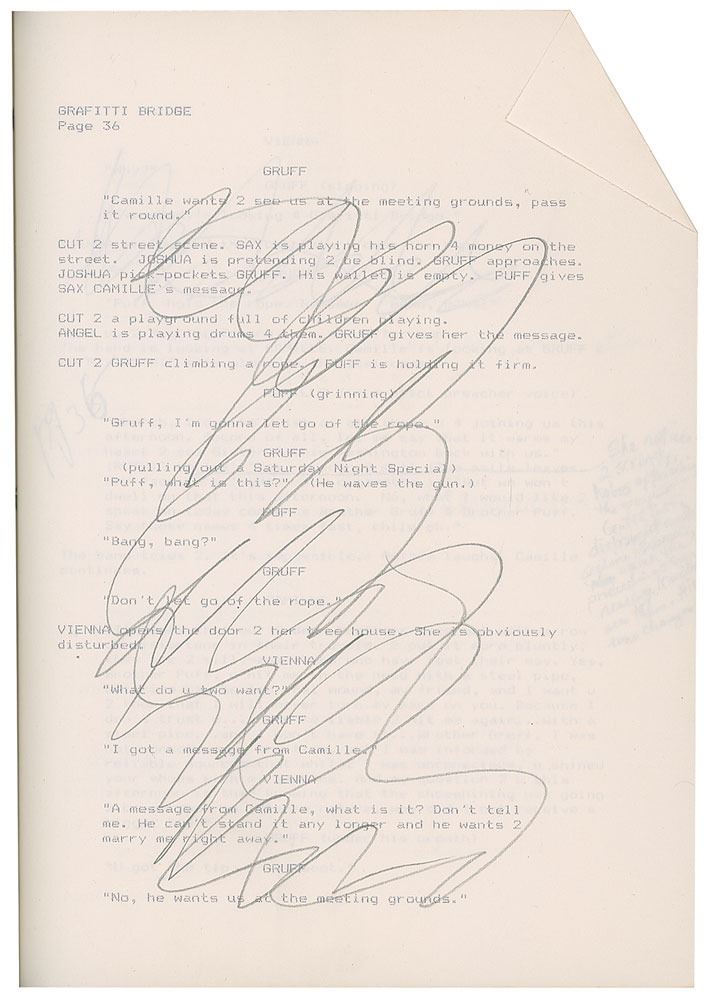 GRAFITTI BRIDGE
Page 36
GRUFF
"Camille wants 2 see us at the meeting grounds, pass
it round."
CUT 2 street scene. SAX is playing his horn 4 money on the
street. JOSHUA is pretending 2 be blind. GRUFF approaches.
JOSHUA pick-pockets GRUFF. His wallet is empty. PUFF gives
SAX CAMILLE's message.
CUT 2 a playground full of children playing.
ANGEL is playing drums 4 them. GRUFF gives her the message.
CUT 2 GRUFF climbing a rope. PUFF is holding it firm.
PUFF (grinning)
"Gruff, I'm gonna let go of the rope."
GRUFF
(pulling out a Saturday Night Special)
"Puff, what is this?" (He waves the gun.)
PUFF
"Bang, bang?"
GRUFF
"Don't let go of the rope."
VIENNA opens the door 2 her tree house. She is obviously
disturbed.
VIENNA
"What do u two want?"
GRUFF
"I got a message from Camille."
VIENNA
"A message from Camille, what is it? Don't tell
me. He can't stand it any longer and he wants 2
marry me right away."
GRUFF
"No, he wants us at the meeting grounds."